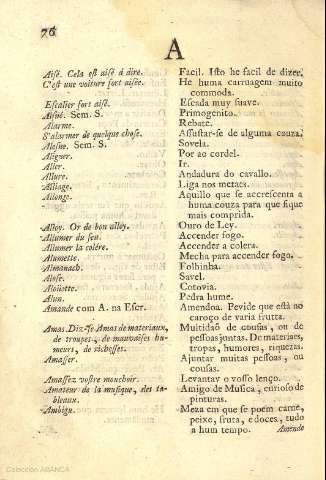 76
A
Aisé. Cela est aisé à dire.
Facil. Isto he facil de dizer.
C'est une voiture fort aisée.
He huma carruagem muito
commoda.
Escalier fort aisé.
Escada muy suave.
Aisné. Sem. S.
Primogenito.
Alarme.
Rebate.
S'alarmer de quelque chose.
Assustar-se de alguma couza.
Alesne. Sem. S.
Sovela.
Aligner.
Por ao cordel.
Aller.
Ir.
Allure.
Andadura do cavallo.
Alliage.
Liga nos metaes.
Allonge.
Aquillo que se accrescenta a
huma couza para que fique
mais comprida.
Alloy. Or de bon alloy.
Ouro de Ley.
Allumer du feu.
Accender fogo.
Allumer la colére.
Accender a colera.
Alumette.
Mecha para accender fogo.
Almanach.
Folhinha.
Alose.
Savel.
Aloüette.
Cotovia.
Alun.
Pedra hume.
Amande com A. na Escr.
Amendoa. Pevide que està no
caroço de varia frutta.
Amas. Diz-se Amas de materiaux,
Multidaõ de cousas, ou de
de troupes, de mauvaises hu-
pessoas juntas. De materises,
meurs, de richesses.
tropas, humores, riquezas.
Amasser.
Ajuntar muitas pessoas, ou
cousas.
Amassez vostre mouchoir.
Levantav o vosso lenço.
Amateur de la musique, des ta-
Amigo de Musica, curioso de
bleaux.
pinturas.
Ambigu.
Meza em que se poem carne,
peixe, fruta, e doces, tudo
a hum tempo.
Amende
Colección ABANCA